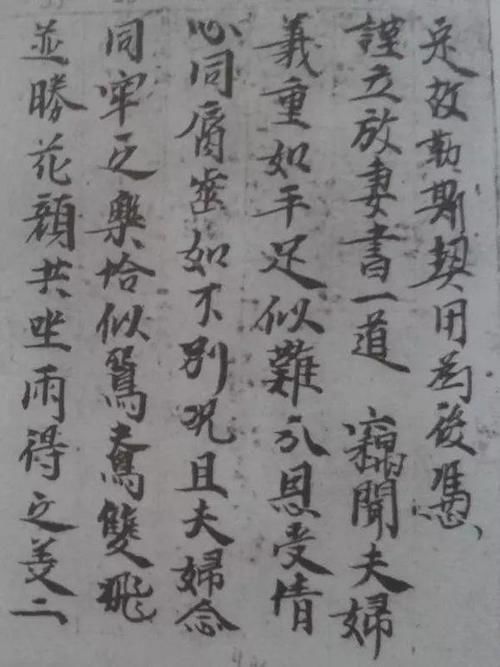 是故勒斯契用為後憑
謹立放妻書一道 竊聞夫婦
義重如手足似難分恩受情
心同脣密如不別况且夫婦念
同牢之樂恰似鴛鴦雙飛
並勝花顏共坐雨得之美二